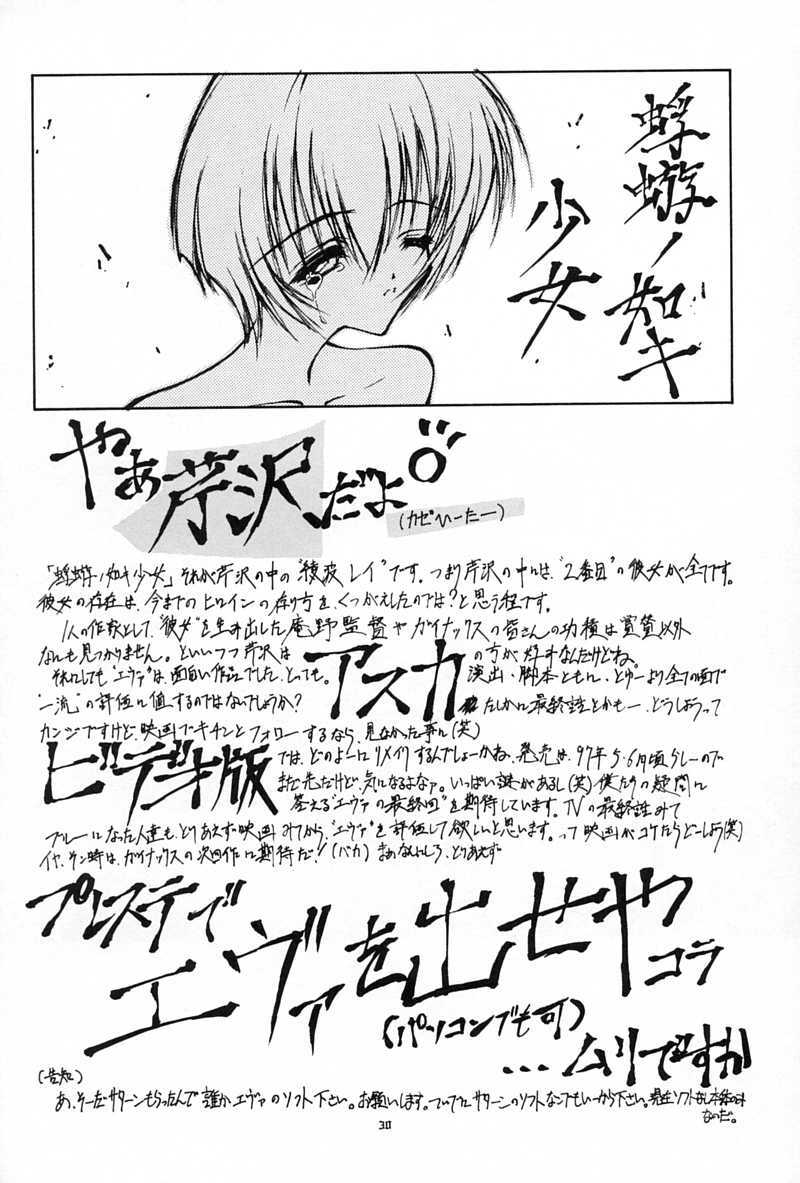 蜉蝣ノ如キ
少女
やぁ芹沢だよ
(カゼひーたー)
「蜉蝣ノ如キ少女」それが芹沢の中の"綾波レイ"です。つまり芹沢の中には、"2番目"の彼女が全てです。
彼女の存在は、今までのヒロインの在り方を、くつがえしたのでは?と思う程です。
1人の作家として、"彼女"を生み出した庵野監督やガイナックスの皆さんの功積は賞賛以外
なんも見つかりません。といいつつ芹沢はアスカの方が好きなんだけどね。
それにしても"エヴァ"は、面白い作品でした、とっても。演出・脚本ともに、とゆーより全ての面で
"一流"の評価に値するのではないでしょうか? たしかに最終話とかも…、どうしようって
カンジですけど、映画でキチンとフォローするなら、見なかった事に(笑)
ビデオ版では、どのよーにリメイクするんでしょーかね。発売は、97年5・6月頃らしーので
まだ先だけど、気になるよなァ。いっぱい謎があるし(笑)僕たちの疑問に
答える"エヴァの最終回"を期待しています。TVの最終話みて
ブルーになった人達も、とりあえず映画みてから、"エヴァ"を評価して欲しいと思います。って映画がコケたらどーしよう(笑)
イヤ、そん時は、ガイナックスの次回作に期待だ!(バカ)まぁなんにしろ、とりあえず
プレステで
エヴァを出せやコラ
(パソコンでも可)
…ムリですか
(告知)
あ、そーだサターンもらったんで誰か、エヴァのソフト下さい。お願いします。ついでにサターンのソフトなんでもいーから下さい。現在ソフトなし、本体のみ
なのだ。
30